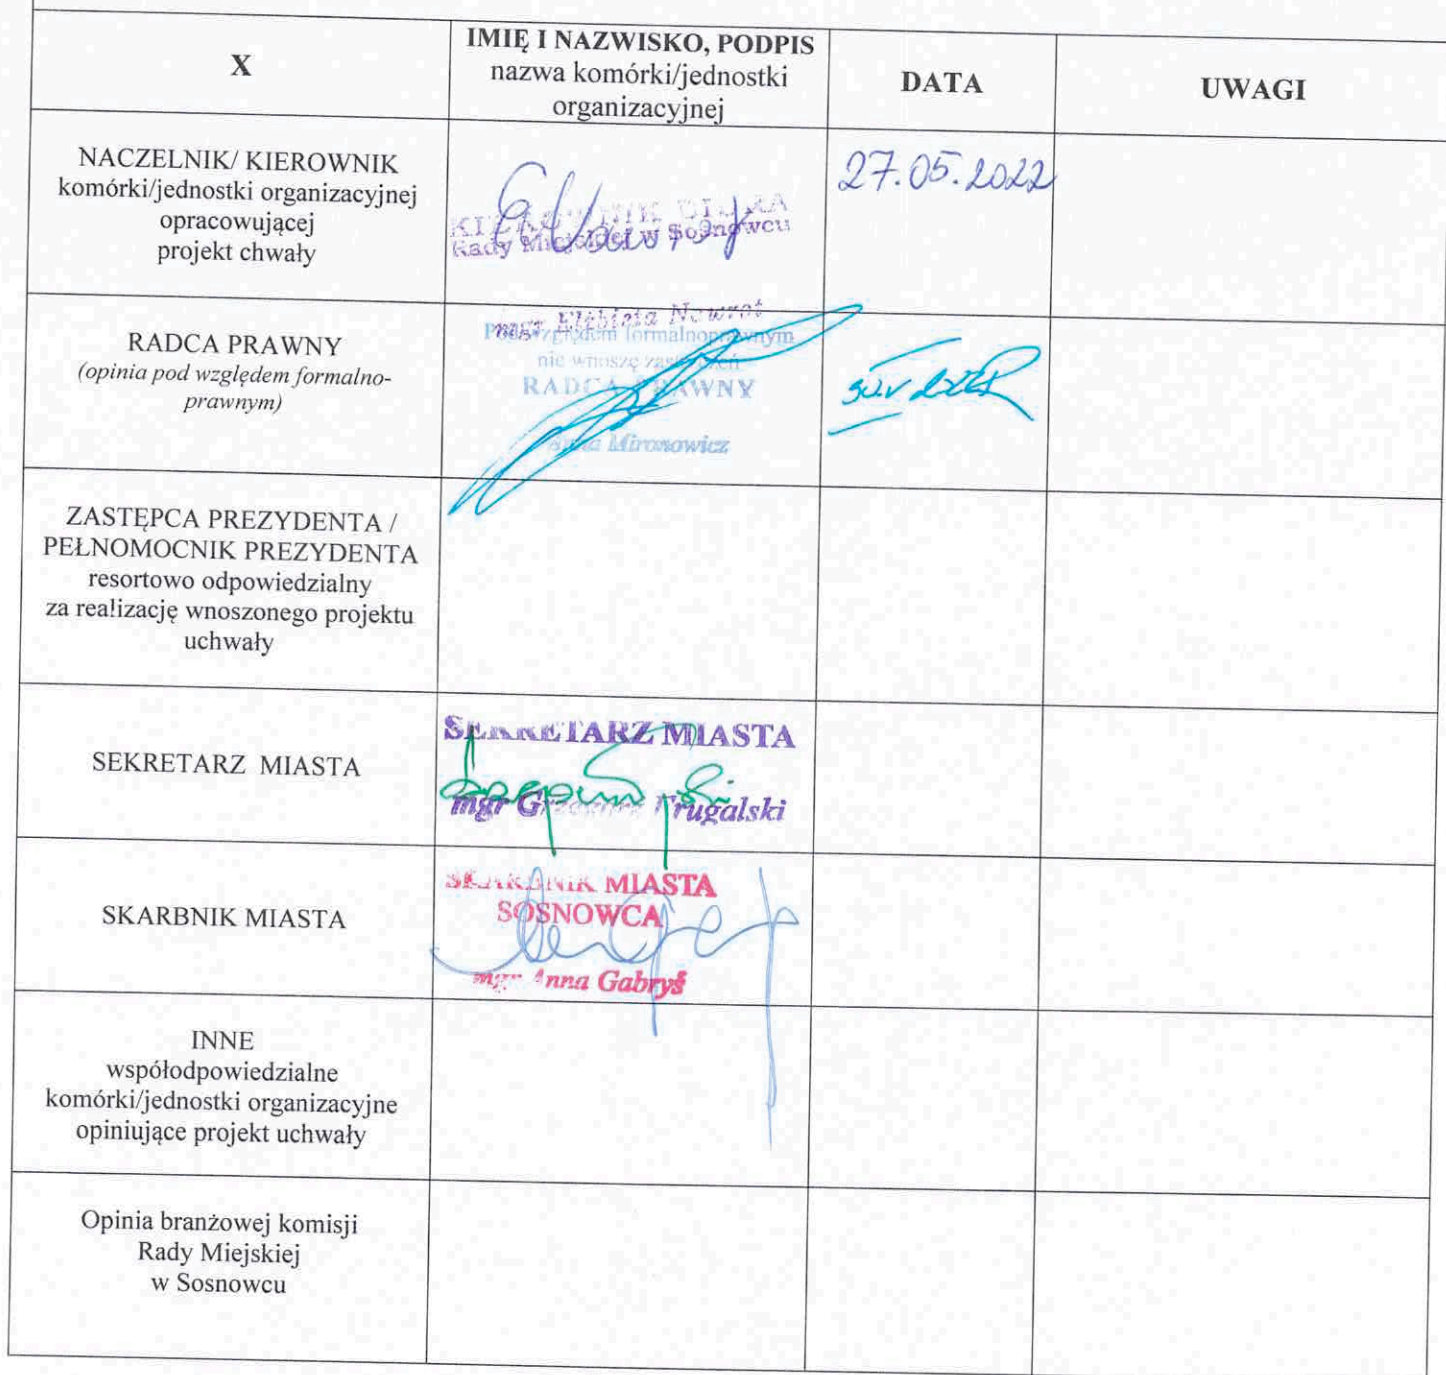 X
IMIĘ I NAZWISKO, PODPIS
nazwa komórki/jednostki
organizacyjnej
DATA
UWAGI
NACZELNIK/ KIEROWNIK
komórki/jednostki organizacyjnej
opracowującej
projekt chwały
KIEROWNIK BIURA
Rady Miejskiej w Sosnowcu
mgr Elżbieta Nawrot
27.05.2022
RADCA PRAWNY
(opinia pod względem formalno-
prawnym)
Pod względem formalnoprawnym
nie wnoszę zastrzeżeń
RADCA PRAWNY
Anna Mironowicz
ZASTĘPCA PREZYDENTA /
PEŁNOMOCNIK PREZYDENTA
resortowo odpowiedzialny
za realizację wnoszonego projektu
uchwały
SEKRETARZ MIASTA
SEKRETARZ MIASTA
mgr
SKARBNIK MIASTA
SKARBNIK MIASTA
SOSNOWCA
mgr Anna Gabryś
INNE
współodpowiedzialne
komórki/jednostki organizacyjne
opiniujące projekt uchwały
Opinia branżowej komisji
Rady Miejskiej
w Sosnowcu